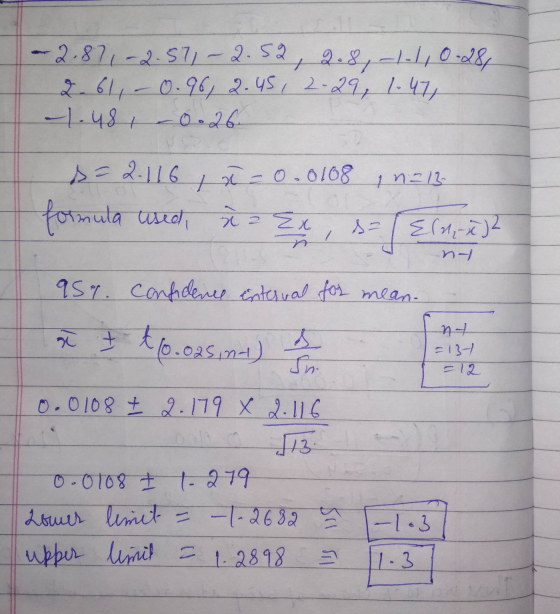 -2.87, -2.57, -2.52, 2.8, -1.1, 0.28,
2.61, -0.96, 2.45, 2.29, 1.47,
-1.48, -0.26.
s = 2.116, x̄ = 0.0108, n=13.
formula used, x̄ = Σx/n, s = √(Σ(xᵢ-x̄)²/(n-1))
95%. Confidence interval for mean.
x̄ ± t(0.025, n-1) s/√n.
n-1
=13-1
=12
0.0108 ± 2.179 × 2.116/√13.
0.0108 ± 1.279
Lower limit = -1.2682 ≅ -1.3
Upper limit = 1.2898 ≅ 1.3